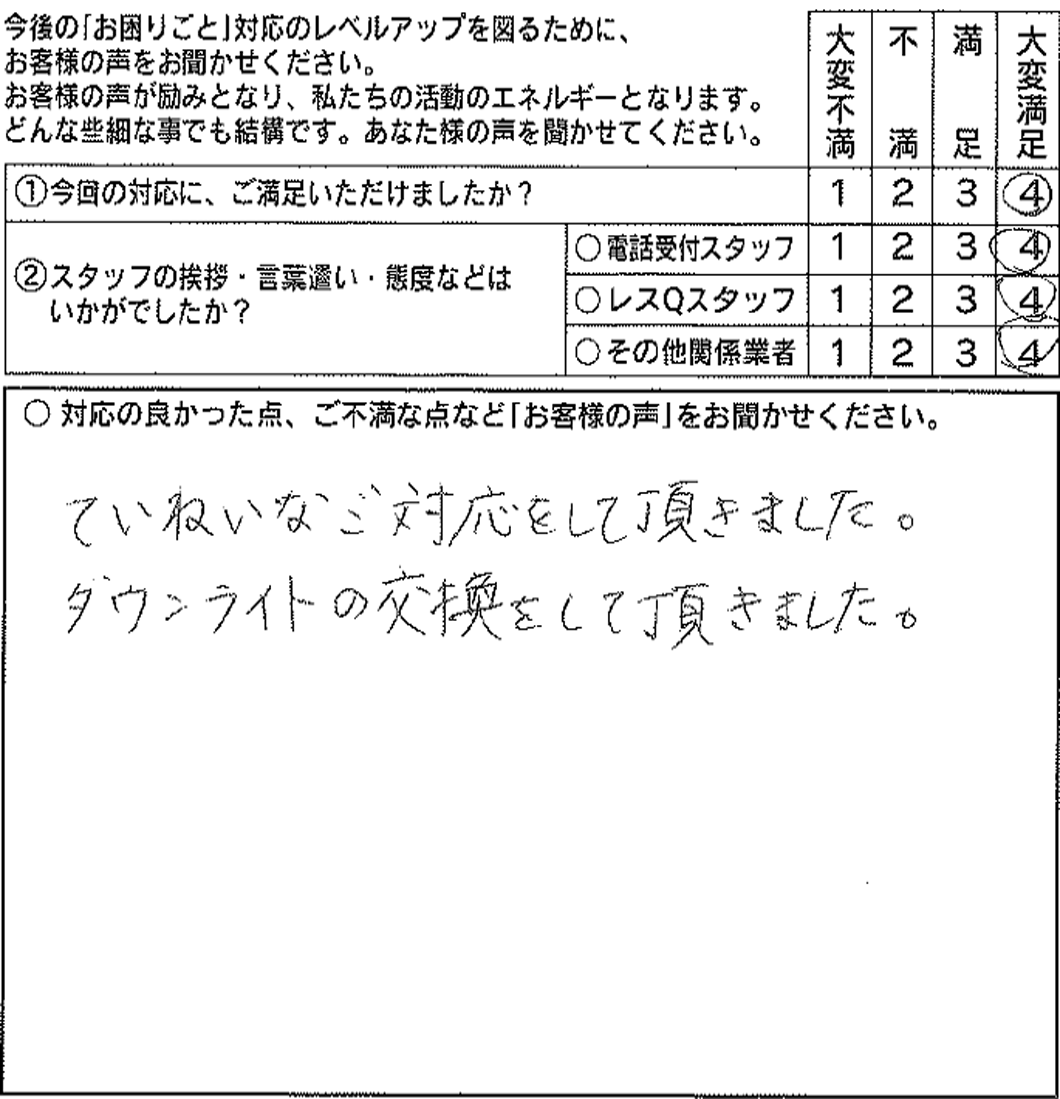 今後の「お困りごと」対応のレベルアップを図るために、
お客様の声をお聞かせください。
お客様の声が励みとなり、私たちの活動のエネルギーとなります。
どんな些細な事でも結構です。あなた様の声を聞かせてください。
大変不満 不満 満足 大変満足
①今回の対応に、ご満足いただけましたか？ 1 2 3 4
②スタッフの挨拶・言葉遣い・態度などは
いかがでしたか？
○電話受付スタッフ 1 2 3 4
○レスQスタッフ 1 2 3 4
○その他関係業者 1 2 3 4
○ 対応の良かった点、ご不満な点など「お客様の声」をお聞かせください。
ていねいなご対応をして頂きました。
ダウンライトの交換をして頂きました。